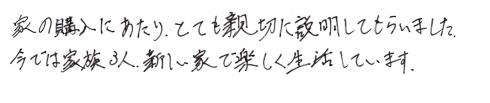 家の購入にあたり、とても親切に説明してもらいました。
今では家族3人、新しい家で楽しく生活しています。